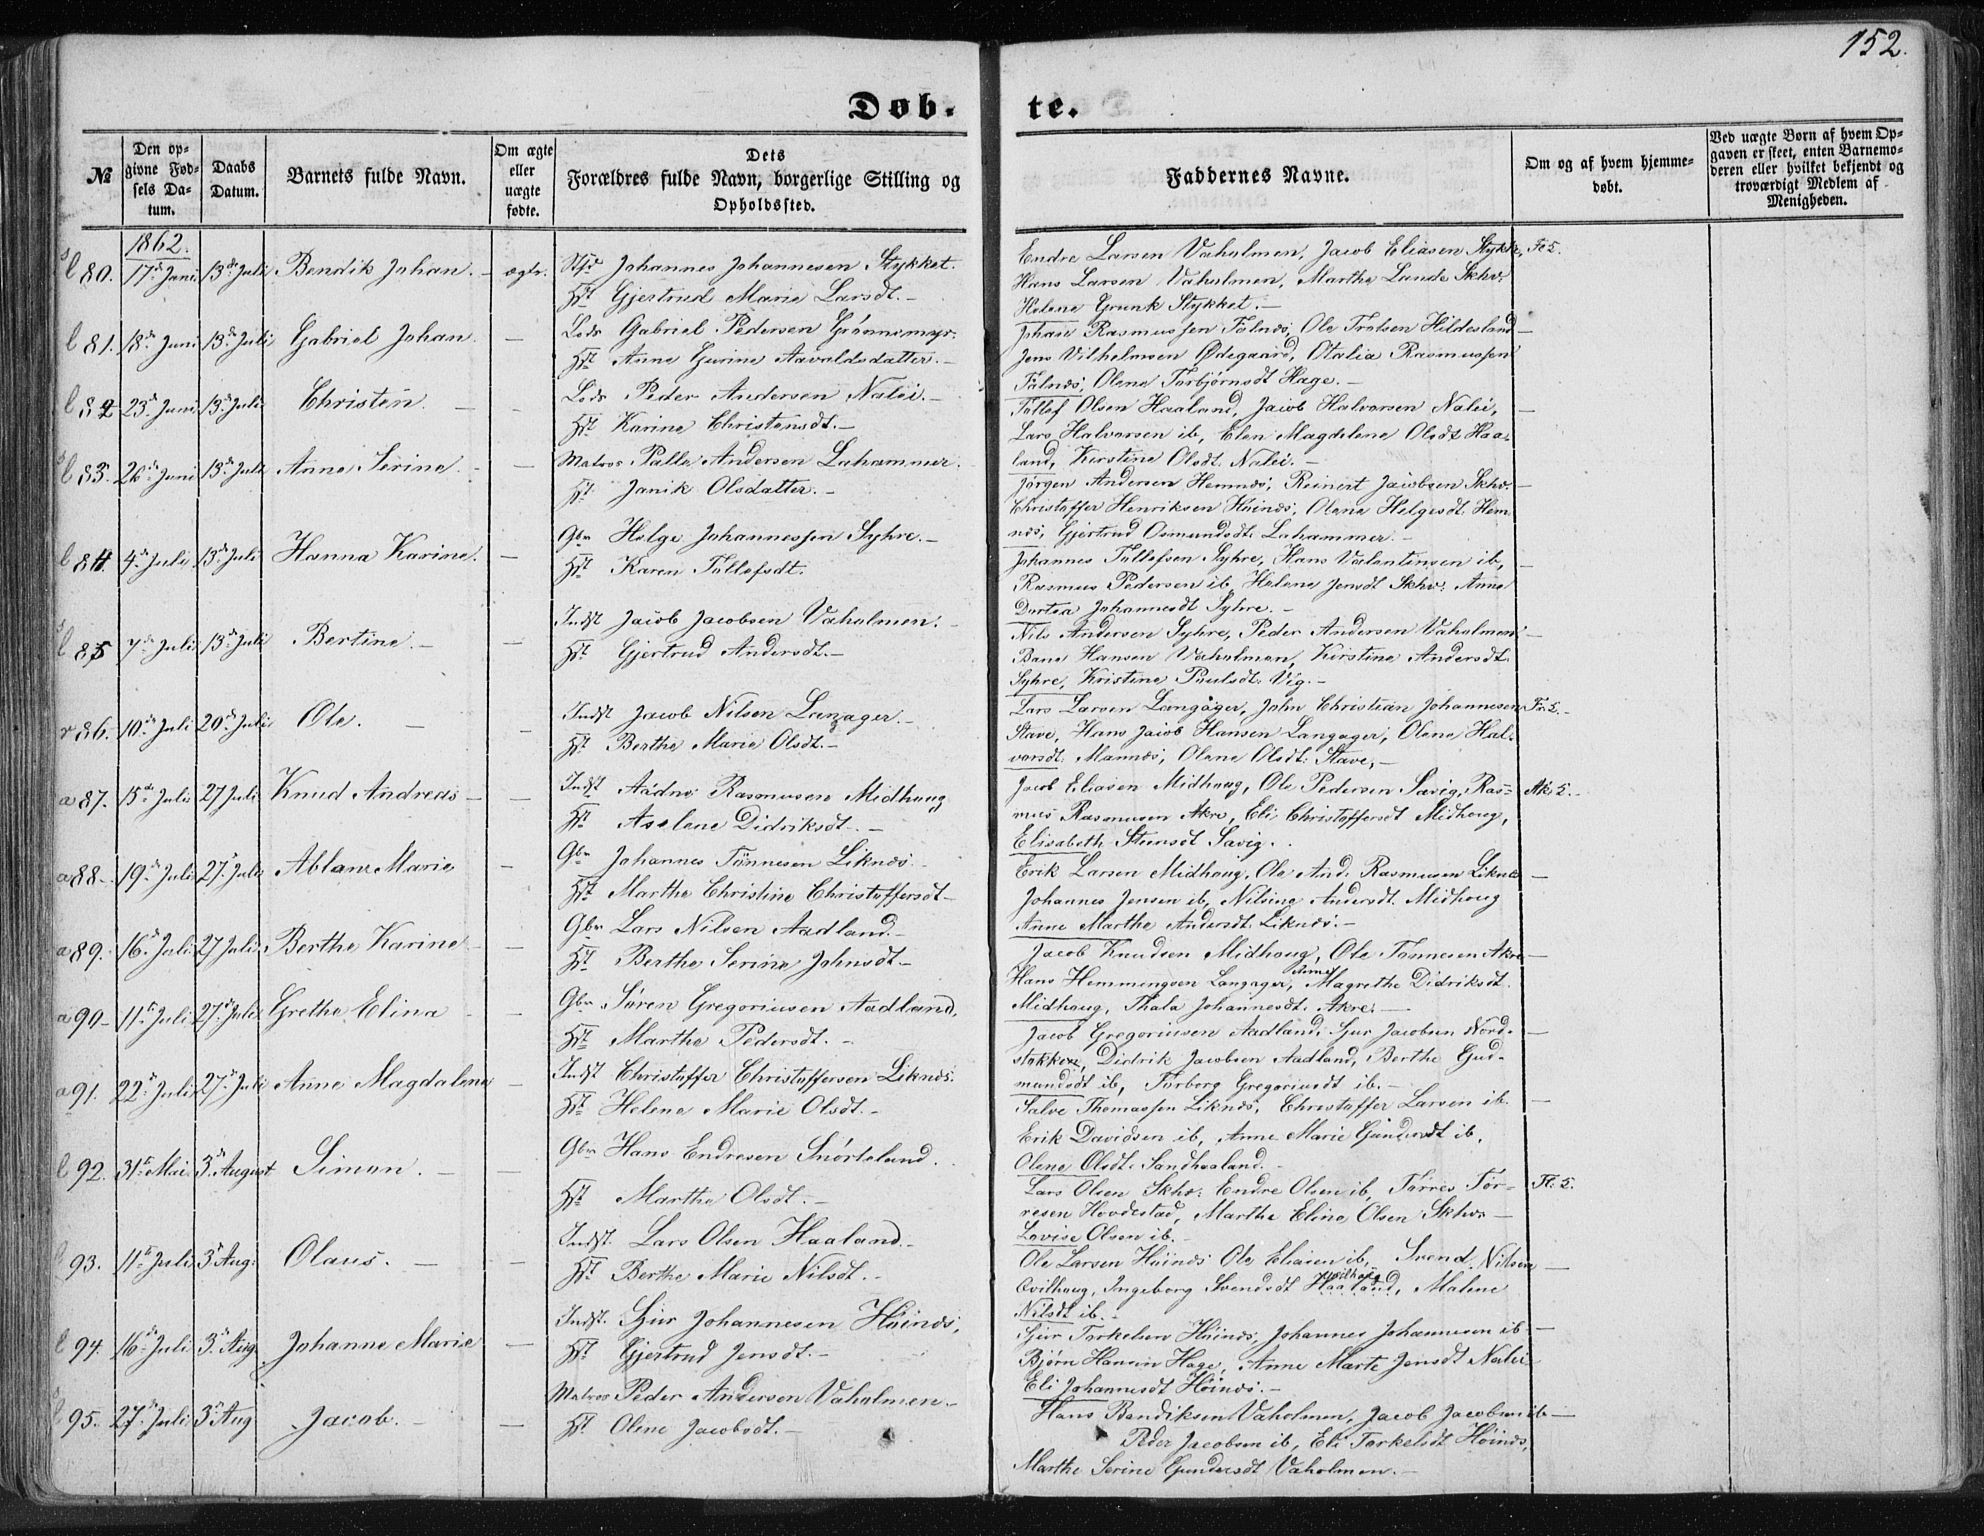 152.
Døb. te.
№
Den op-
givne Fød-
sels Da-
tum.
Daabs
Datum.
Barnets fulde Navn.
Om ægte
eller
uægte
fødte.
Dets
Forældres fulde Navn, borgerlige Stilling og
Opholdssted.
Faddernes Navne.
Om og af hvem hjemme-
døbt.
Ved uægte Børn af hvem Op-
gaven er skeet, enten Barnemo-
deren eller hvilket bekjendt og
troværdigt Medlem af
Menigheden.
1862.
80. 17de Juni 13de Juli Bendik Johan. - ægte. Johannes Johannesen Stykket.
Gjertrud Marie Larsdt. -
Endre Larsen Vaholmen, Jacob Eliasen Stykke,
Hans Larsen Vaholmen, Marthe Lunde Skhv:
Helene Grunk Stykket. -
81. 18de Juni 13de Juli Gabriel Johan. - Lods Gabriel Pedersen Grønnemyr.
Anne Gurine Aavaldsdatter. -
Johan Rasmussen Falnæs, Ole Trolsen Hildesland -
Jens Vilhelmsen Ødegaard, Otalia Rasmussen
Falnæs, Olene Torbjørnsdt Hage. -
82 23de Juni 13de Juli Christen. - Lods Peder Andersen Nalei. -
Karine Christensdt. -
Tollef Olsen Haaland, Jacob Halvorsen Nalei, -
Lars Halvorsen ib, Elen Magdelene Olsdt Haa-
land, Kirstine Olsdt. Nalei. -
83. 26de Juni 13de Juli Anne Serine. - Matros Palle Andersen Lahammer.
Janik Olsdatter. -
Jørgen Andersen Hemnæs, Reinert Jacobsen Skhv: -
Christoffer Henriksen Høinæs, Olene Helgesdt Hem
næs, Gjertrud Osmundsdt. Lahammer. -
84. 4de Juli 13de Juli Hanna Karine. - Gbr Helge Johannessen Syhre. -
Karen Tollefsdt.
Johannes Tollefsen Syhre, Hans Valentinsen ib, -
Rasmus Pedersen ib, Helene Jensdt Skhv: Anne
Dortea Johannesdt Syhre. -
85 7de Juli 13de Juli Bertine. - Indst Jacob Jacobsen Vaholmen. -
Gjertrud Andersdt. -
Nils Andersen Syhre, Peder Andersen Vaholmen -
Bane Hansen Vaholmen, Kirstine Andersdt.
Syhre, Kristine Poulsdt. Vig. -
86. 10de Juli 20de Juli Ole. - Indst Jacob Nilsen Langager. -
Berthe Marie Olsdt. -
Lars Larsen Langager, John Christian Johannesen
Stave, Hans Jacob Hansen Langager, Olene Hal-
vorsdt. Mannæs, Olene Olsdt. Stave, -
87. 15de Juli 27 Juli Knud Andreas - Indst Aadne Rasmusen Midhaug
Aselene Didriksdt. -
Jacob Eliasen Midhaug, Ole Pedersen Sævig, Ras-
mus Rasmusen Akre, Eli Christoffersdt Midhoug,
Elisabeth Steinsdt Sævig.
88. 19de Juli 27de Juli Ablane Marie - Gbr Johannes Tønnesen Liknæs. -
Marthe Christine Christoffersdt -
Erik Larsen Midhaug, Ole And. Rasmusen Liknæs -
Johannes Jensen ib, Nilsine Andersdt Midhoug
Anne Marthe Andersdt. Liknæs. -
89. 16de Juli 27 Juli Berthe Karine - Gbr Lars Nilsen Aadland. -
Berthe Serine Johnsdt. -
Jacob Knudsen Midhaug, Ole Tønnesen Akre -
Hans Hemmingsen Langager, Anne Magrethe Didriksdt
Midhaug, Thala Johannesdt. Akre. -
90 11te Juli 27de Juli Grethe Elina - Gbr Søren Gregoriusen Aadland.
Marthe Pedersdt. -
Jacob Gregoriusen Aadland, Sjur Jacobsen Nord- -
stokken, Didrik Jacobsen Aadland, Berthe Gud-
mundsdt ib, Torborg Gregoriusdt ib. -
91. 22de Juli 27de Juli Anne Magdalene - Indst Christoffer Christoffersen Liknæs.
Helene Marie Olsdt. -
Salve Thomassen Liknæs, Christoffer Larsen ib. -
Erik Davidsen ib, Anne Marie Gundersdt ib,
Olene Olsdt. Sandhaaland. -
92. 31te Mai 3de August Simon. - Gbr Hans Endresen Snørteland.
Marthe Olsdt. -
Lars Olsen Skhv: Endre Olsen ib, Tørres Tør-
resen Hovdestad, Marthe Eline Olsen Skhv: -
Lovise Olsen ib. -
93. 11te Juli 3de Aug: Olaus. - Indst. Lars Olsen Haaland. -
Berthe Marie Nilsdt. -
Ole Larsen Høinæs Ole Eliasen ib, Svend Nilsen -
Qvilhaug, Ingeborg Svendsdt Haaland, Malene
Nilsdt ib. -
94. 16de Juli 3de Aug. Johanne Marie - Indst. Sjur Johannesen Høinæs,
Gjertrud Jensdt. -
Sjur Torkelsen Høinæs, Johannes Johannesen ib -
Bjørn Hansen Hage, Anne Marte Jensdt Nalei
Eli Johannesdt Høinæs. -
95. 27de Juli 3de Aug Jacob. - Matros Peder Andersen Vaholmen. -
Olene Jacobsdt. -
Hans Bendiksen Vaholmen, Jacob Jacobsen ib -
Peder Jacobsen ib, Eli Torkelsdt Høinæs,
Marthe Serine Gundersdt Vaholmen. -